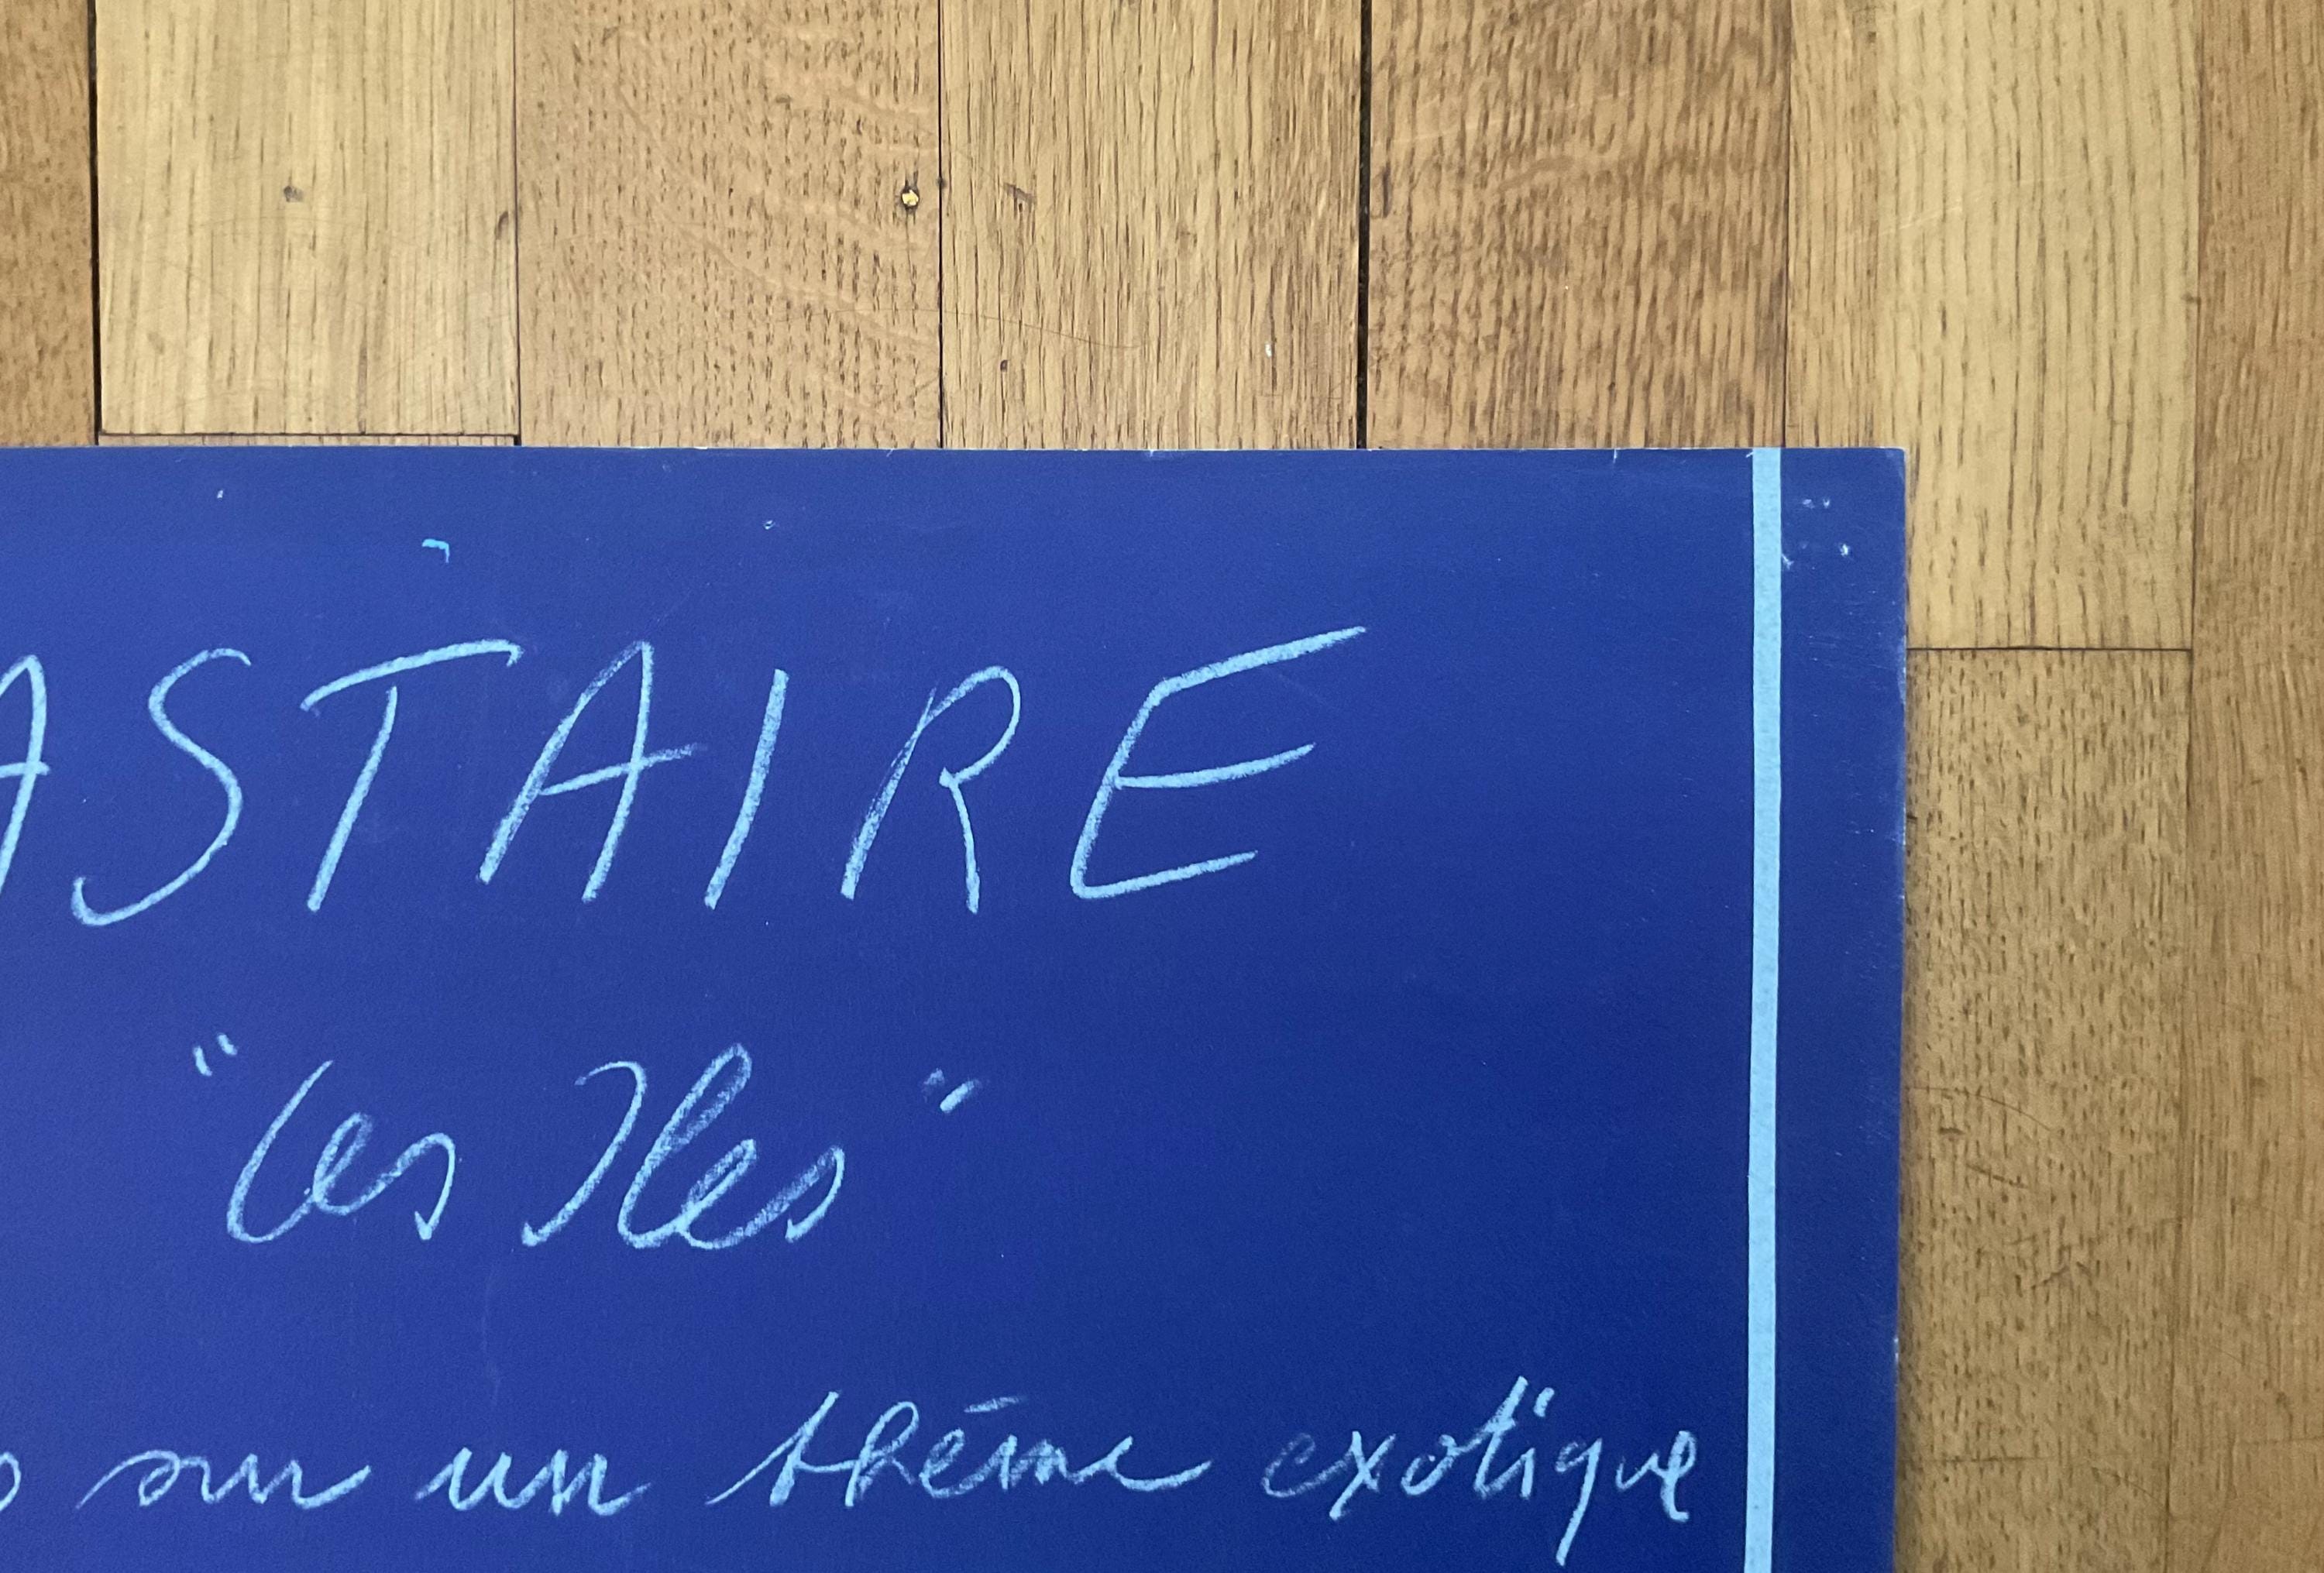 ASTAIRE
"Les Iles"
sur un thème exotique